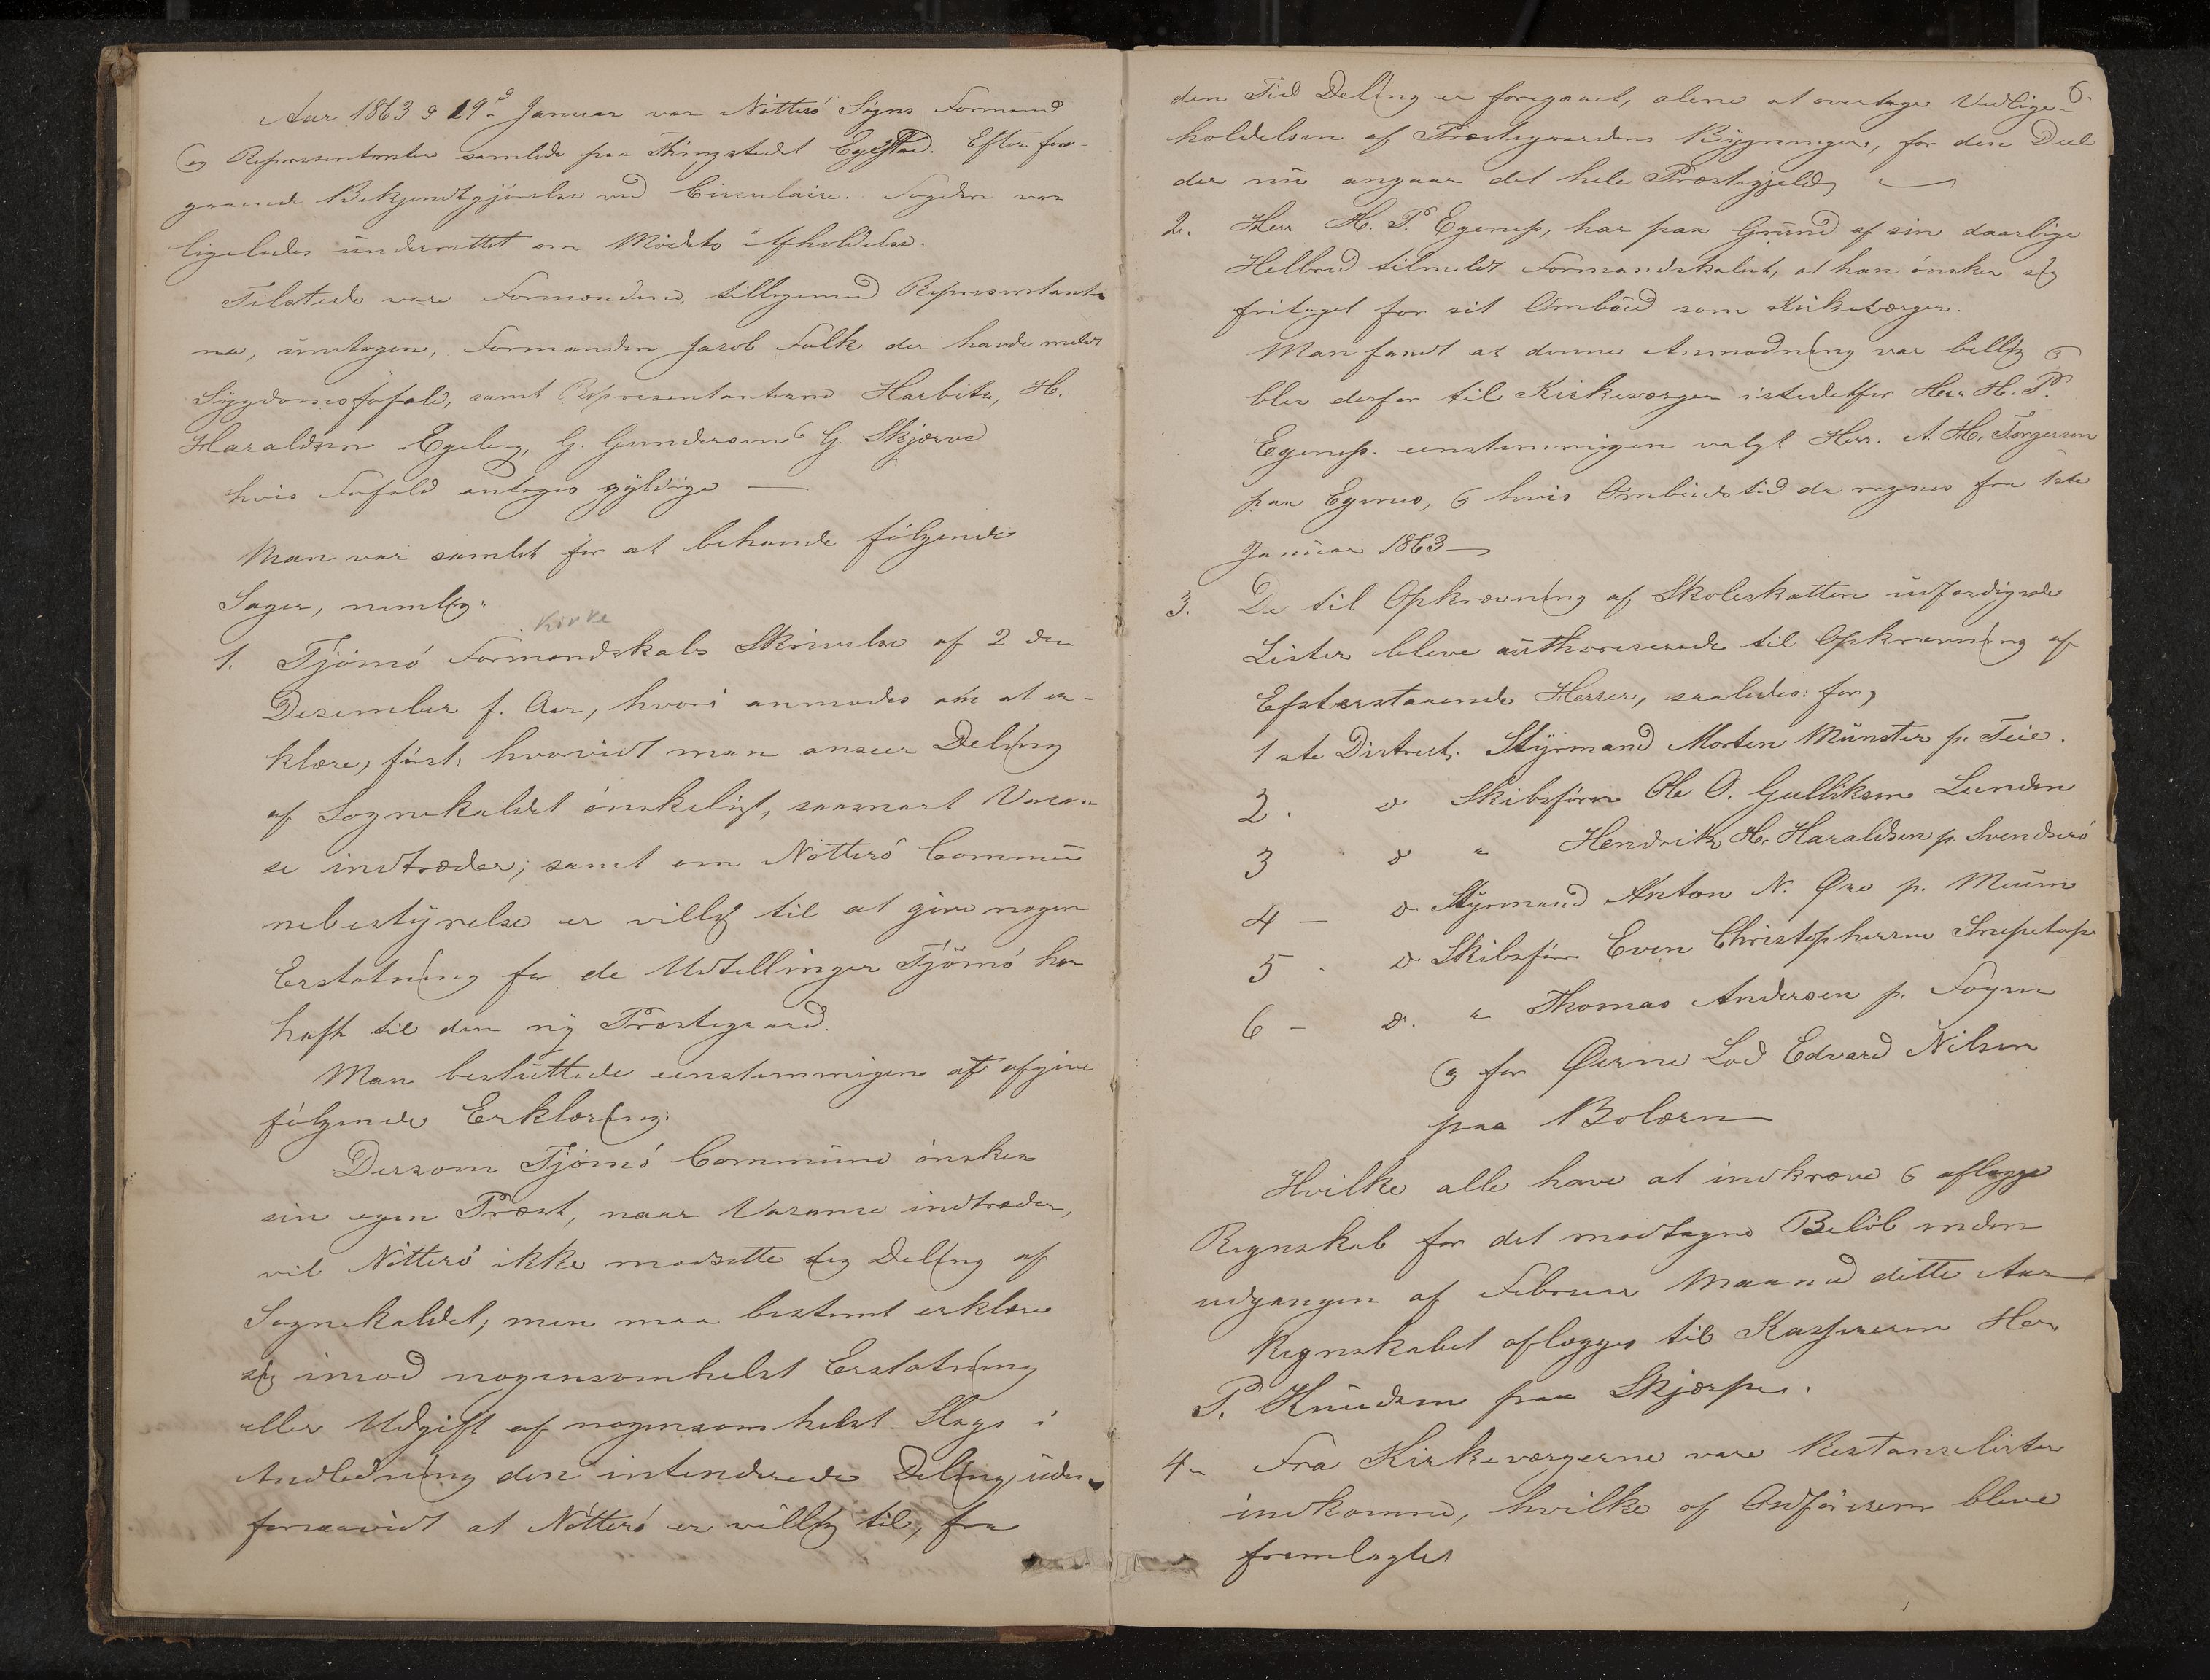 Aar 1863 d 19d Januar var Nötterö Sogns Formænd
og Repræsentanter samlede paa Thingstedet Egestad. Efter fore-
gaaende Bekjendtgjörelse ved Circulaire. Fogden var
ligeledes underrettet om Mödets Afholdelse.
Tilstede vare Formændene, tilligemed Repræsentanter
ne, undtagen, Formanden Jacob Falk der havde meldt
Sygdomsforfald, samt Repræsentanterne Harbitz, H.
Haraldsen Egeberg, G. Gundersen & G. Skjerve
hvis Forfald antoges gyldige —
Man var samlet for at behandle fölgende
Sager, nemlig:
Kirke
1. Tjömö Formandskabs Skrivelse af 2den
Desember f. Aar, hvori anmodes om at er-
klære, först: hvorvidt man anseer Deling
af Sognekaldet önskeligt, saasnart Vacan-
se indtræder; samt om Nötterö Commu
nebestyrelse er villig til at give nogen
Erstatning for de Udtellinger Tjömö har
haft til den ny Præstegaard.
Man besluttede eenstemmigen at afgive
fölgende Erklæring:
Dersom Tjömö Commune önsker
sin egen Præst, naar Vacanse indtræder,
vil Nötterö ikke modsette sig Deling af
Sognekaldet; men maa bestemt erklære
sig imod nogensomhelst Erstatning
eller Udgift af nogensomhelst Slags i
Andledning den intenderede Deling, uden
forsaavidt at Nötterö er villig til, fra
6.
den Tid Deling er foregaaet, alene at overtage Vedlige-
holdelsen af Præstegaardens Bygninger, for den Deel
der nu angaar det hele Præstegjeld, —
2. Herr H. P. Egenes, har paa Grund af sin daarlige
Helbred tilmeldt Formandskabet, at han önsker sig
fritaget for sit Ombud som Kirkeværger.
Man fandt at denne Anmodning var billig &
blev derfor til Kirkeværger istedetfor Herr H. P.
Egenes. eenstemmigen valgt Herr. A. H. Torgersen
paa Egenes, & hvis Ombudstid da regnes fra 1ste
Januar 1863 —
3. De til Opkrævning af Skoleskatten udfærdigede
Lister bleve authoriserede til Opkrævning af
Efterstaaende Herrer, saaledes: for,
1ste District. Styrmand Morten Münster p. Teie.
2. d Skibsförer Ole O. Gulliksen Lunden
3 d " Hendrik H. Haraldsen p. Svendserö
4 — d Styrmand Anton N. Øre p. Meum
5. d Skibsförer Even Christophersen
6 — d. " Thomas Andersen p. Foyen
og for Øerne Lod Edvard Nilsen
paa Bolæren
Hvilke alle have at indkræve & aflægge
Regnskab for det modtagne Belöb inden
udgangen af Februar Maaned dette Aar
Regnskabet aflægges til Kassereren Herr
P. Knudsen paa Skjerpe.
4. Fra Kirkeværgerne vare Restanselister
indkomne, hvilke af Ordföreren bleve
fremlagte